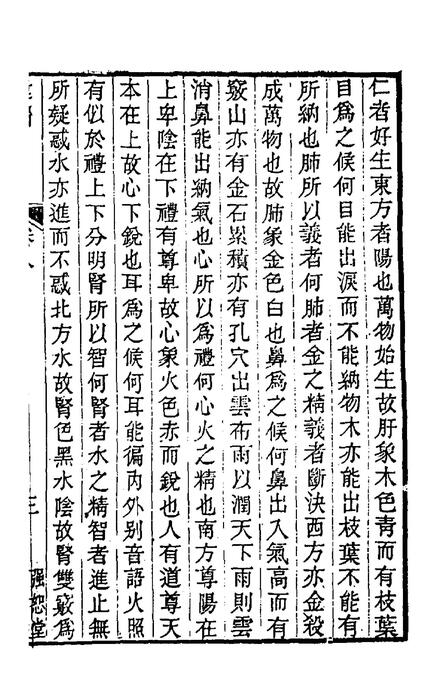 仁者好生東方者陽也萬物始生故肝象木色青而有枝葉
目爲之候何目能出淚而不能納物木亦能出枝葉不能有
所納也肺所以義者何肺者金之精義者斷決西方亦金殺
成萬物也故肺象金色白也鼻爲之候何鼻出入氣高而有
竅山亦有金石累積亦有孔穴出雲布雨以潤天下雨則雲
消鼻能出納氣也心所以爲禮何心火之精也南方尊陽在
上卑陰在下禮有尊卑故心象火色赤而銳也人有道尊天
本在上故心下銳也耳爲之候何耳能徧內外别音語火照
有似於禮上下分明腎所以智何腎者水之精智者進止無
所疑惑水亦進而不惑北方水故腎色黑水陰故腎雙竅爲
卷八
三
強恕堂